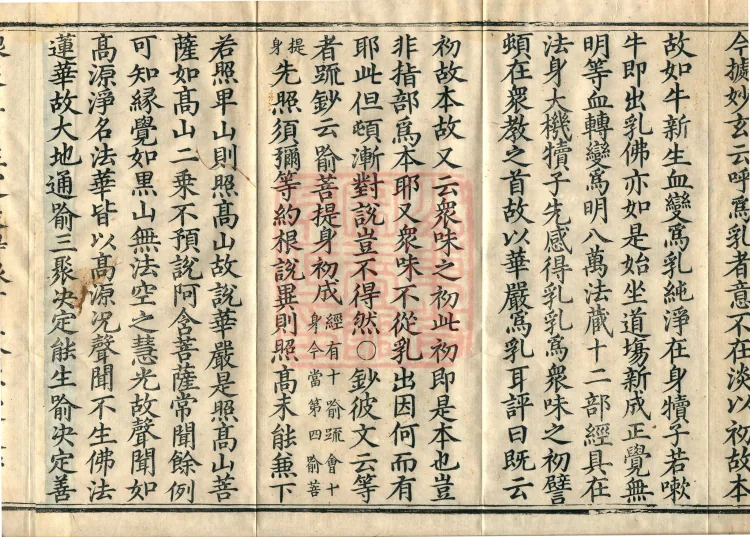 今據妙玄云呼爲乳者意不在淡以初故本
故如牛新生血變爲乳純淨在身犢子若𠲿
牛即出乳佛亦如是始坐道塲新成正覺無
明等血轉變爲明八萬法藏十二部經具在
法身大機犢子先感得乳乳爲衆味之初譬
頓在衆教之首故以華嚴爲乳耳評曰既云
初故本故又云衆味之初此初即是本也豈
非指部爲本耶又衆味不從乳出因何而有
耶此但頓漸對說豈不得然〇鈔彼文云等
者䟽鈔云喻菩提身初成經有十喻䟽會十身今當第四喻菩
提身先照須彌等約根說異則照高未能兼下
若照卑山則照髙山故說華嚴是照髙山菩
薩如髙山二乗不預說阿含菩薩常聞餘例
可知縁覺如黒山無法空之慧光故聲聞如
髙源淨名法華皆以髙源況聲聞不生佛法
蓮華故大地通喻三聚决定能生喻决定善